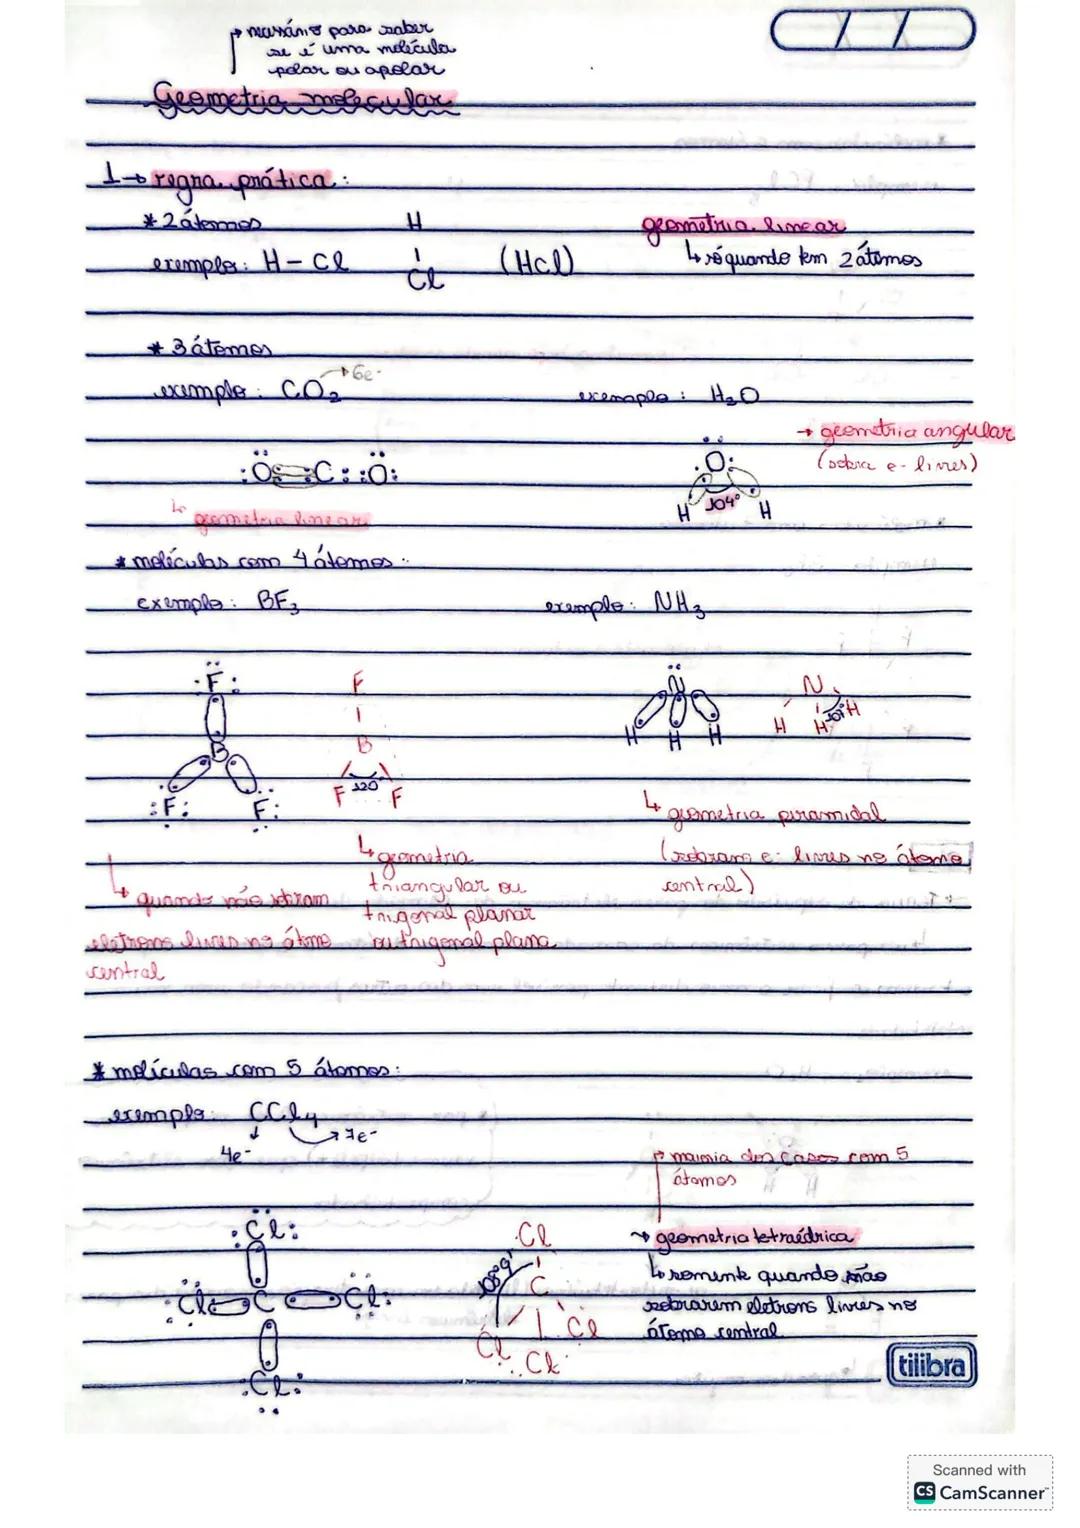 ↱ necessário para saber
se é uma molécula
polar ou apolar
/ /
Geometria molecular
1→ regra prática:
* 2 átomos
exemplo: H - Cl
H
Cl
(HCl)
geometria linear
↳ só quando tem 2 átomos
* 3 átomos
exemplo: CO2 → 6e-
:O C :: O:
↳ geometria linear
exemplo: H2O
:O:
H 104° H
→ geometria angular
(sobra e- livres)
* moléculas com 4 átomos:
exemplo: BF3
:F:
B
:F: F:
F
B
F 120 F
↳ quando não sobram
eletrons livres no átomo
central
↳ geometria
triangular ou
trigonal planar
ou trigonal plana
exemplo: NH3
N
H H H
N
H H 107° H
↳ geometria piramidal
(sobram e- livres no átomo
central)
* moléculas com 5 átomos:
exemplo CCl4
4e- → 7e-
:Cl:
:Cl C Cl:
:Cl:
Cl
C
Cl Cl Cl
↱ maioria dos casos com 5
átomos
→ geometria tetraédrica
↳ somente quando não
sobrarem eletrons livres no
átomo central
tilibra
Scanned with
CS CamScanner